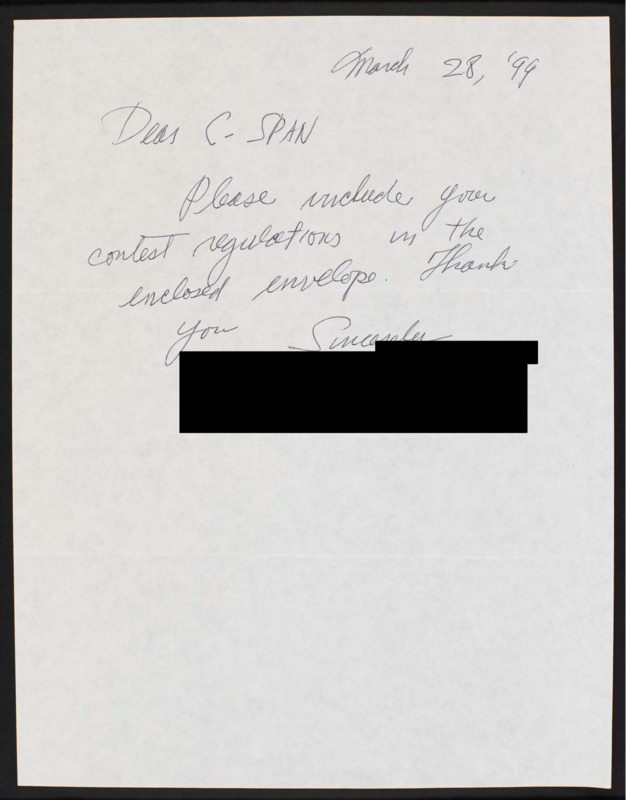 March 28, '99
Dear C-SPAN
Please include your
contest regulations in the
enclosed envelope. Thank
you Sincerely